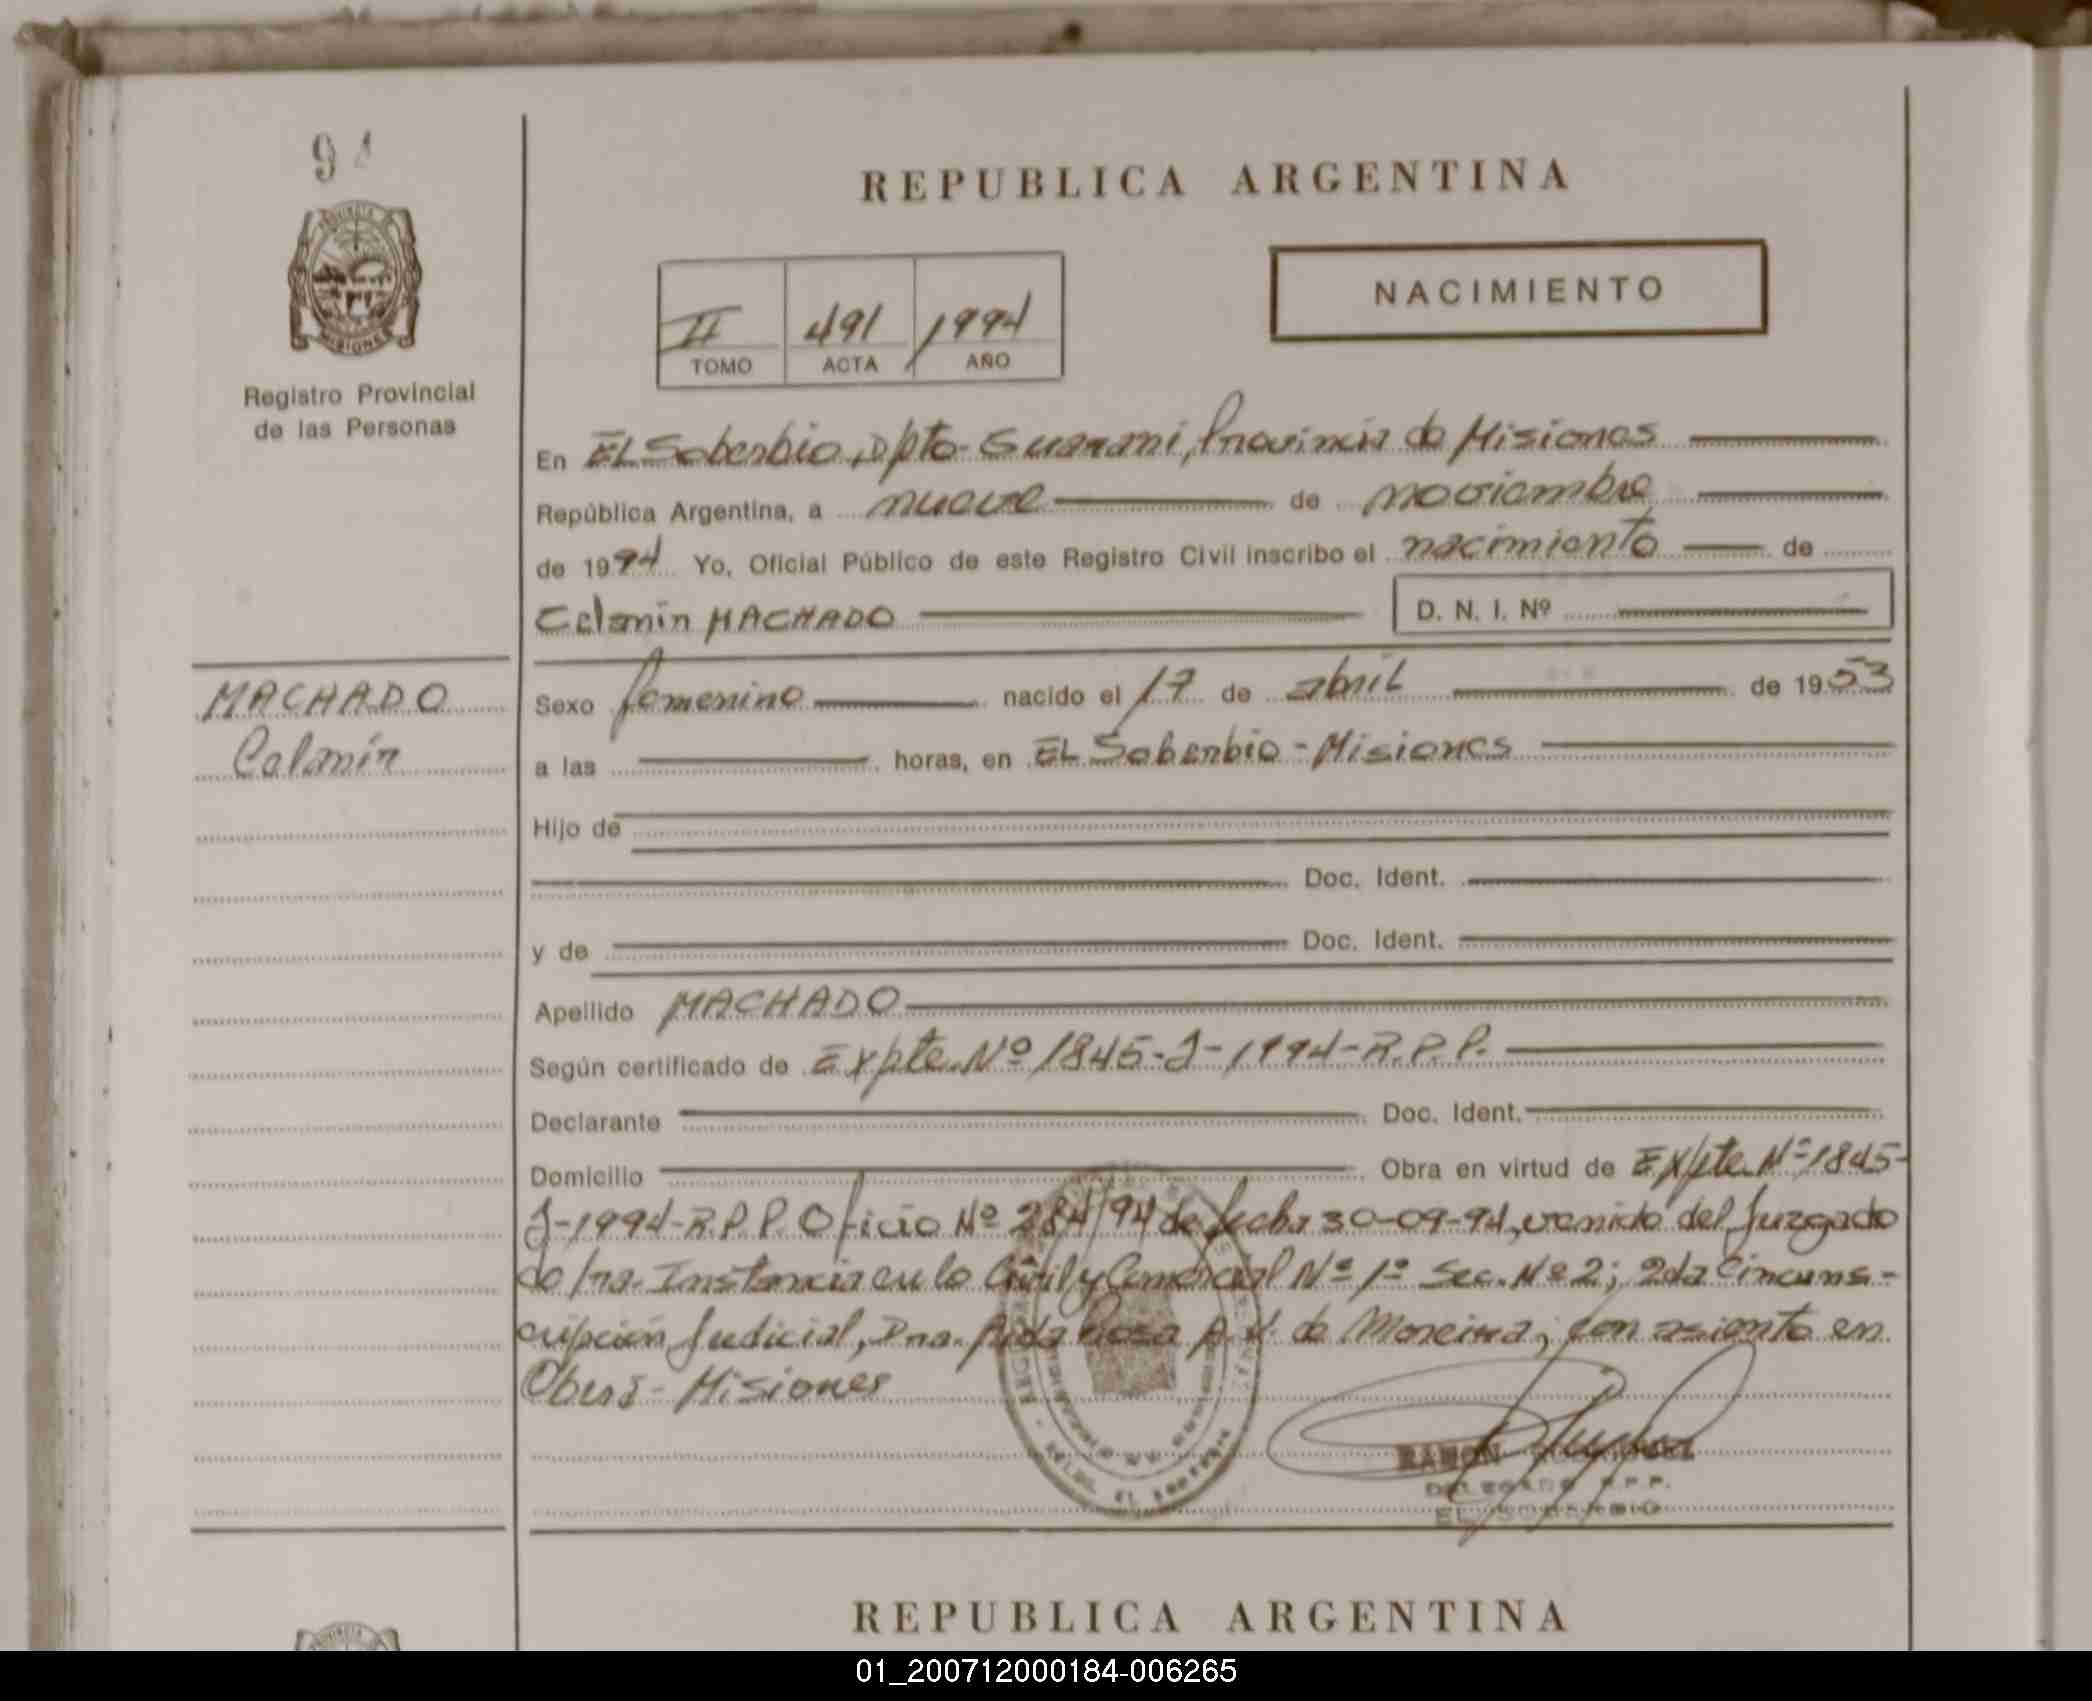 9
PROVINCIA DE
MISIONES
Registro Provincial
de las Personas
MACHADO
Celanin
REPUBLICA ARGENTINA
NACIMIENTO
II 491 1994
TOMO ACTA AÑO
En EL Soberbio, Dpto- Guarani, Provincia de Misiones
República Argentina, a nueve de noviembre
de 1994 Yo, Oficial Público de este Registro Civil inscribo el nacimiento de
Celanin MACHADO D. N. I. Nº
Sexo femenino nacido el 17 de abril de 1953
a las horas, en EL Soberbio - Misiones
Hijo de
Doc. Ident.
y de Doc. Ident.
Apellido MACHADO
Según certificado de Expte. Nº 1845-J-1994-R.P.P.
Declarante Doc. Ident.
Domicilio Obra en virtud de Expte Nº 1845-
J-1994-R.P.P. Oficio Nº 284/94 de fecha 30-09-94, venido del Juzgado
de 1ra. Instancia en lo Civil y Comercial Nº 1º Sec. Nº 2; 2da Circuns-
cripción Judicial, Dra. Aida Rosa A. V. de Moreira, con asiento en
Oberá - Misiones
RAMON
DELEGADO R.P.P.
EL SOBERBIO
REPUBLICA ARGENTINA
01_200712000184-006265